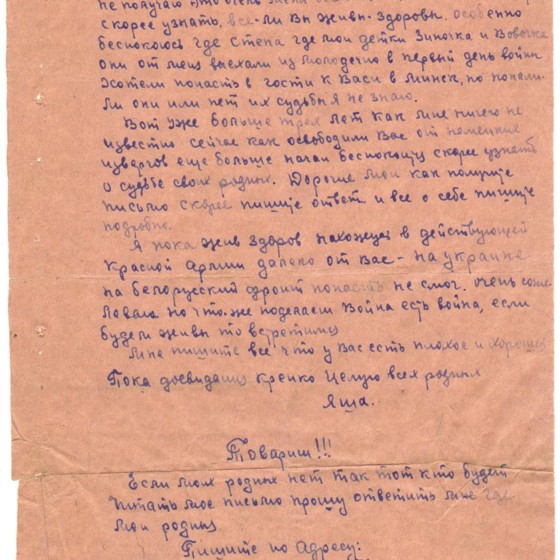 не получаю это очень
скорее узнать, все-ли Вы живы-здоровы. особенно
беспокоюсь где Степа где мои детки Зиночка и Вовочка
они от меня выехали из Молодечно в первый день войны
Хотели попасть в гости к Васи в Минск, но попали-
ли они или нет их судьбы я не знаю.
Вот уже больше трех лет как мне ничего не
известно сейчас как освободили Вас от немецких
извергов еще больше начал беспокоиця скорее узнать
о судьбе своих родных. Дорогие мои как получите
письмо скорее пишите ответ и все о себе пишите
подробно.
Я пока жив здоров нахожуся в действующей
Красной Армии далеко от Вас - на украине
на белорусский фронт попасть не смог. очень сожа-
ловаю но что же поделаеш Война есть война, если
будем живы то встретимся
Мне пишите все что у Вас есть плохое и хорошее
Пока досвидания крепко Целую всех родных
Яша.
Товариш!!!
Если моих родных нет так тот кто будет
читать мое письмо прошу ответить мне где
мои родных
Пишите по Адресу: